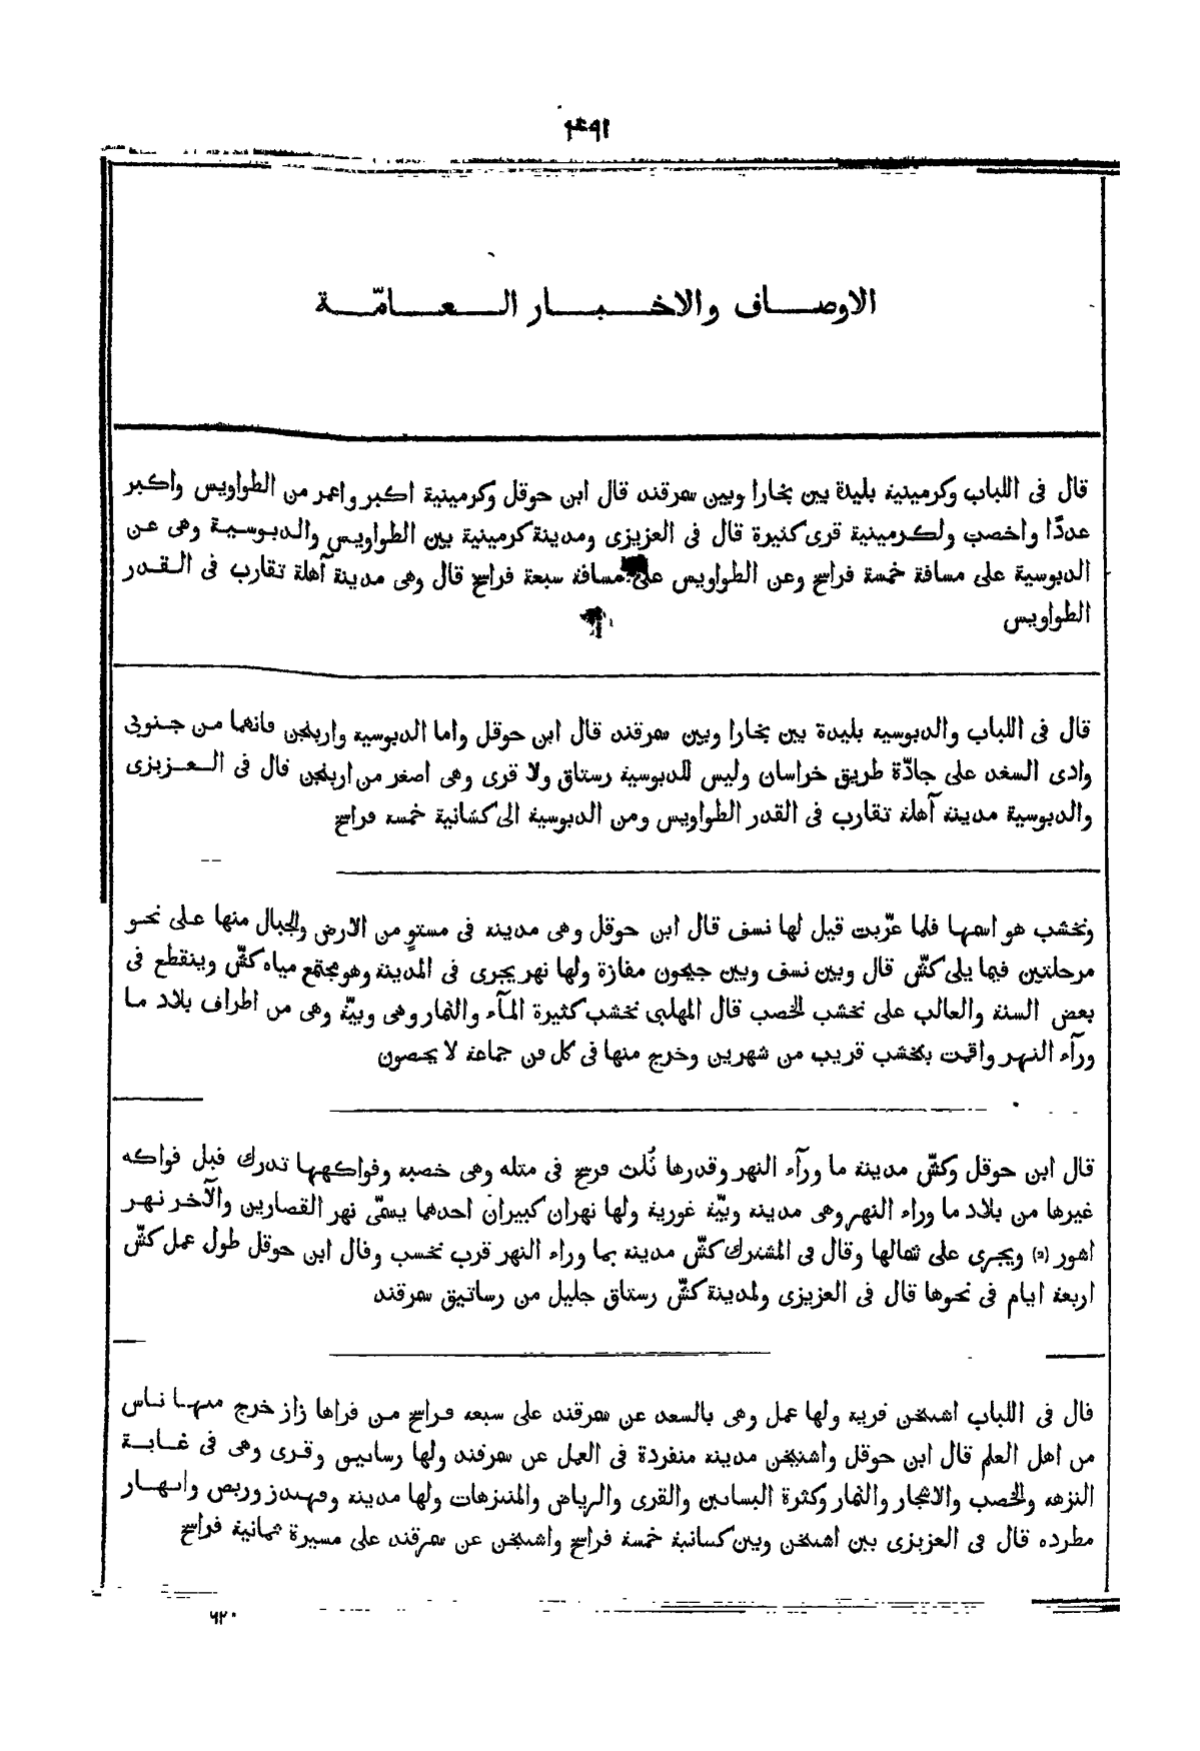 ٤٩١
الاوصاف والاخبار العامّة
قال فى اللباب وكرمينية بليدة بين بخارا وبين سمرقند قال ابن حوقل وكرمينية اكبر واعمر من الطواويس واكبر
عددًا واخصب ولكرمينية قرى كثيرة قال فى العزيزى ومدينة كرمينية بين الطواويس والدبوسية وهى عن
الدبوسية على مسافة خمسة فراسخ وعن الطواويس على مسافة سبعة فراسخ قال وهى مدينة آهلة تقارب فى القدر
الطواويس
قال فى اللباب والدبوسية بليدة بين بخارا وبين سمرقند قال ابن حوقل واما الدبوسية واربنجن فانهما من جنوبى
وادى السغد على جادّة طريق خراسان وليس للدبوسية رستاق ولا قرى وهى اصغر من اربنجن قال فى العزيزى
والدبوسية مدينة آهلة تقارب فى القدر الطواويس ومن الدبوسية الى كشانية خمسة فراسخ
ونخشب هو اسمها فلما عرّبت قيل لها نسف قال ابن حوقل وهى مدينة فى مستوٍ من الارض والجبال منها على نحو
مرحلتين فيما يلى كشّ قال وبين نسف وبين جيحون مفازة ولها نهر يجرى فى المدينة وهو مجتمع مياه كشّ وينقطع فى
بعض السنة والغالب على نخشب الخصب قال المهلبى نخشب كثيرة المآء والثمار وهى وبيّة وهى من اطراف بلاد ما
ورآء النهر واقمت بنخشب قريب من شهرين وخرج منها فى كل فن جماعة لا يحصون
قال ابن حوقل وكشّ مدينة ما ورآء النهر وقدرها ثُلث فرسخ فى مثله وهى خصبة وفواكهها تدرك قبل فواكه
غيرها من بلاد ما وراء النهر وهى مدينة وبيّة غورية ولها نهران كبيران احدهما يسمّى نهر القصارين والآخر نهر
اشور (٥) ويجرى على شمالها وقال فى المشترك كشّ مدينة بما وراء النهر قرب نخسب وقال ابن حوقل طول عمل كشّ
اربعة ايام فى نحوها قال فى العزيزى ولمدينة كشّ رستاق جليل من رساتيق سمرقند
قال فى اللباب اشتيخن قرية ولها عمل وهى بالسغد عن سمرقند على سبعة فراسخ من قراها زاز خرج منها ناس
من اهل العلم قال ابن حوقل واشتيخن مدينة منفردة فى العمل عن سمرقند ولها رساتيق وقرى وهى فى غاية
النزهة والخصب والاشجار والثمار وكثرة البساتين والقرى والرياض والمتنزهات ولها مدينة وقهندز وربض وانهار
مطردة قال فى العزيزى بين اشتيخن وبين كسانية خمسة فراسخ واشتيخن عن سمرقند على مسيرة ثمانية فراسخ
٦٢٠